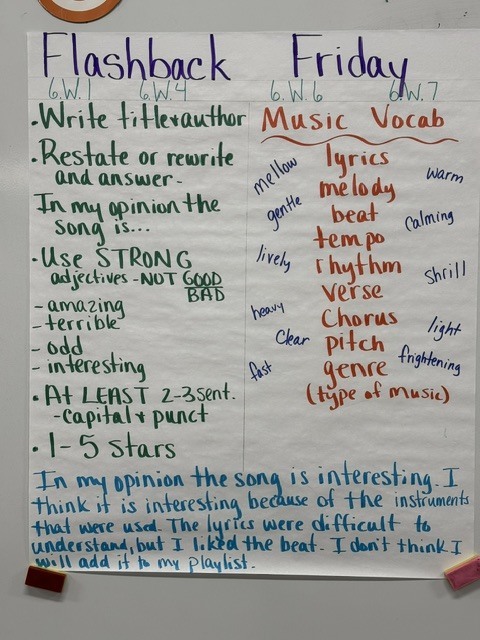 Flashback Friday
6.W.1 6.W.4 6.W.6 6.W.7
• Write title + author
• Restate or rewrite
and answer -
In my opinion the
song is...
• Use STRONG
adjectives - NOT GOOD
BAD
- amazing
- terrible
- odd
- interesting
• At LEAST 2-3 sent.
- capital + punct
• 1-5 stars
Music Vocab
lyrics
melody
beat
tempo
rhythm
verse
Chorus
pitch
genre
(type of music)
mellow
gentle
lively
heavy
Clear
fast
warm
Calming
Shrill
light
frightening
In my opinion the song is interesting. I
think it is interesting because of the instruments
that were used. The lyrics were difficult to
understand, but I liked the beat. I don't think I
will add it to my playlist.